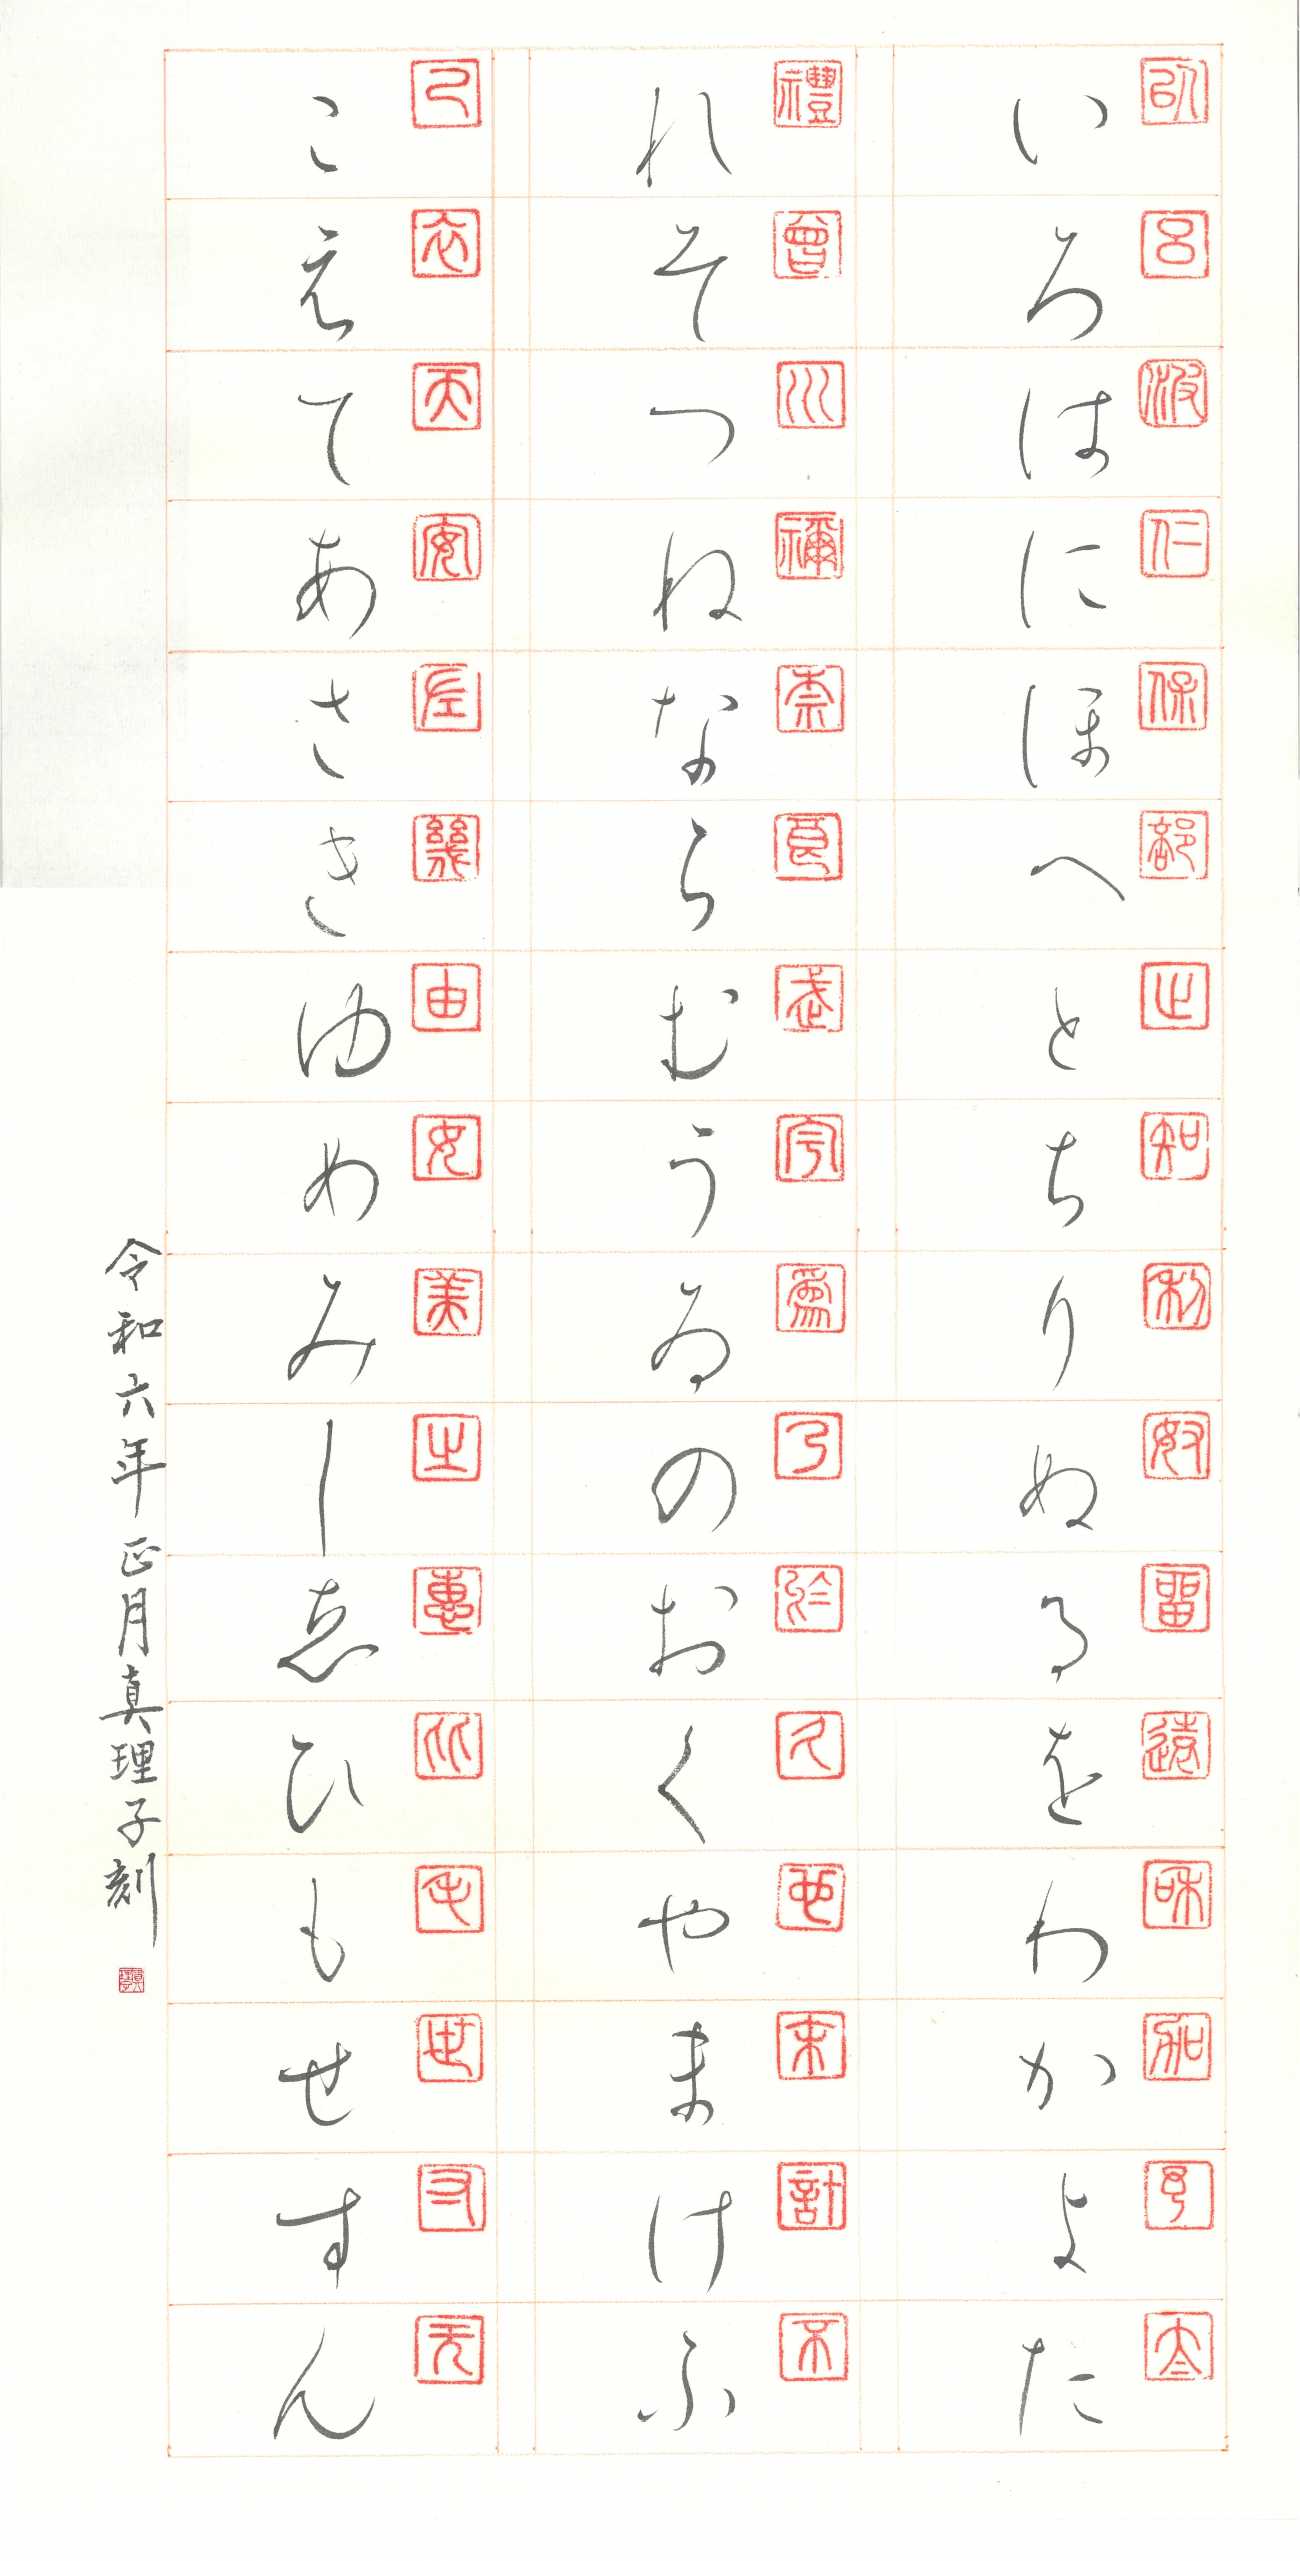 以呂波仁保部止知利奴留遠和加与太
いろはにほへとちりぬるをわかよた
禮曾川禰奈良武宇爲乃於久也末計不
れそつねならむうゐのおくやまけふ
己衣天安左幾由女美之惠比毛世寸无
こえてあさきゆめみしゑひもせすん
令和六年正月真理子刻